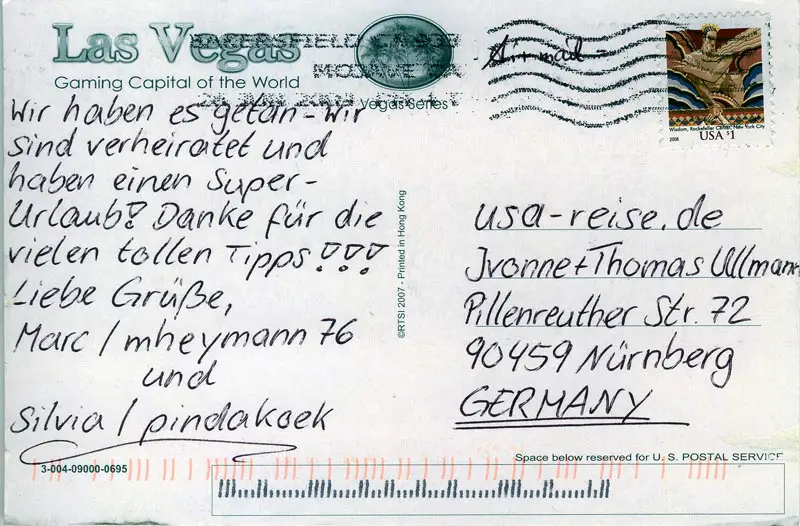 Las Vegas
Gaming Capital of the World
Vegas Series
Airmail
Wisdom, Rockefeller Center, New York City
2008
USA $1
Wir haben es getan - wir
sind verheiratet und
haben einen Super-
Urlaub! Danke für die
vielen tollen Tipps!!!
Liebe Grüße,
Marc / mheymann 76
und
Silvia / pindakoek
©RTSI 2007 - Printed in Hong Kong
usa-reise.de
Yvonne + Thomas Ullmann
Pillenreuther Str. 72
90459 Nürnberg
GERMANY
Space below reserved for U. S. POSTAL SERVICE
3-004-09000-0695